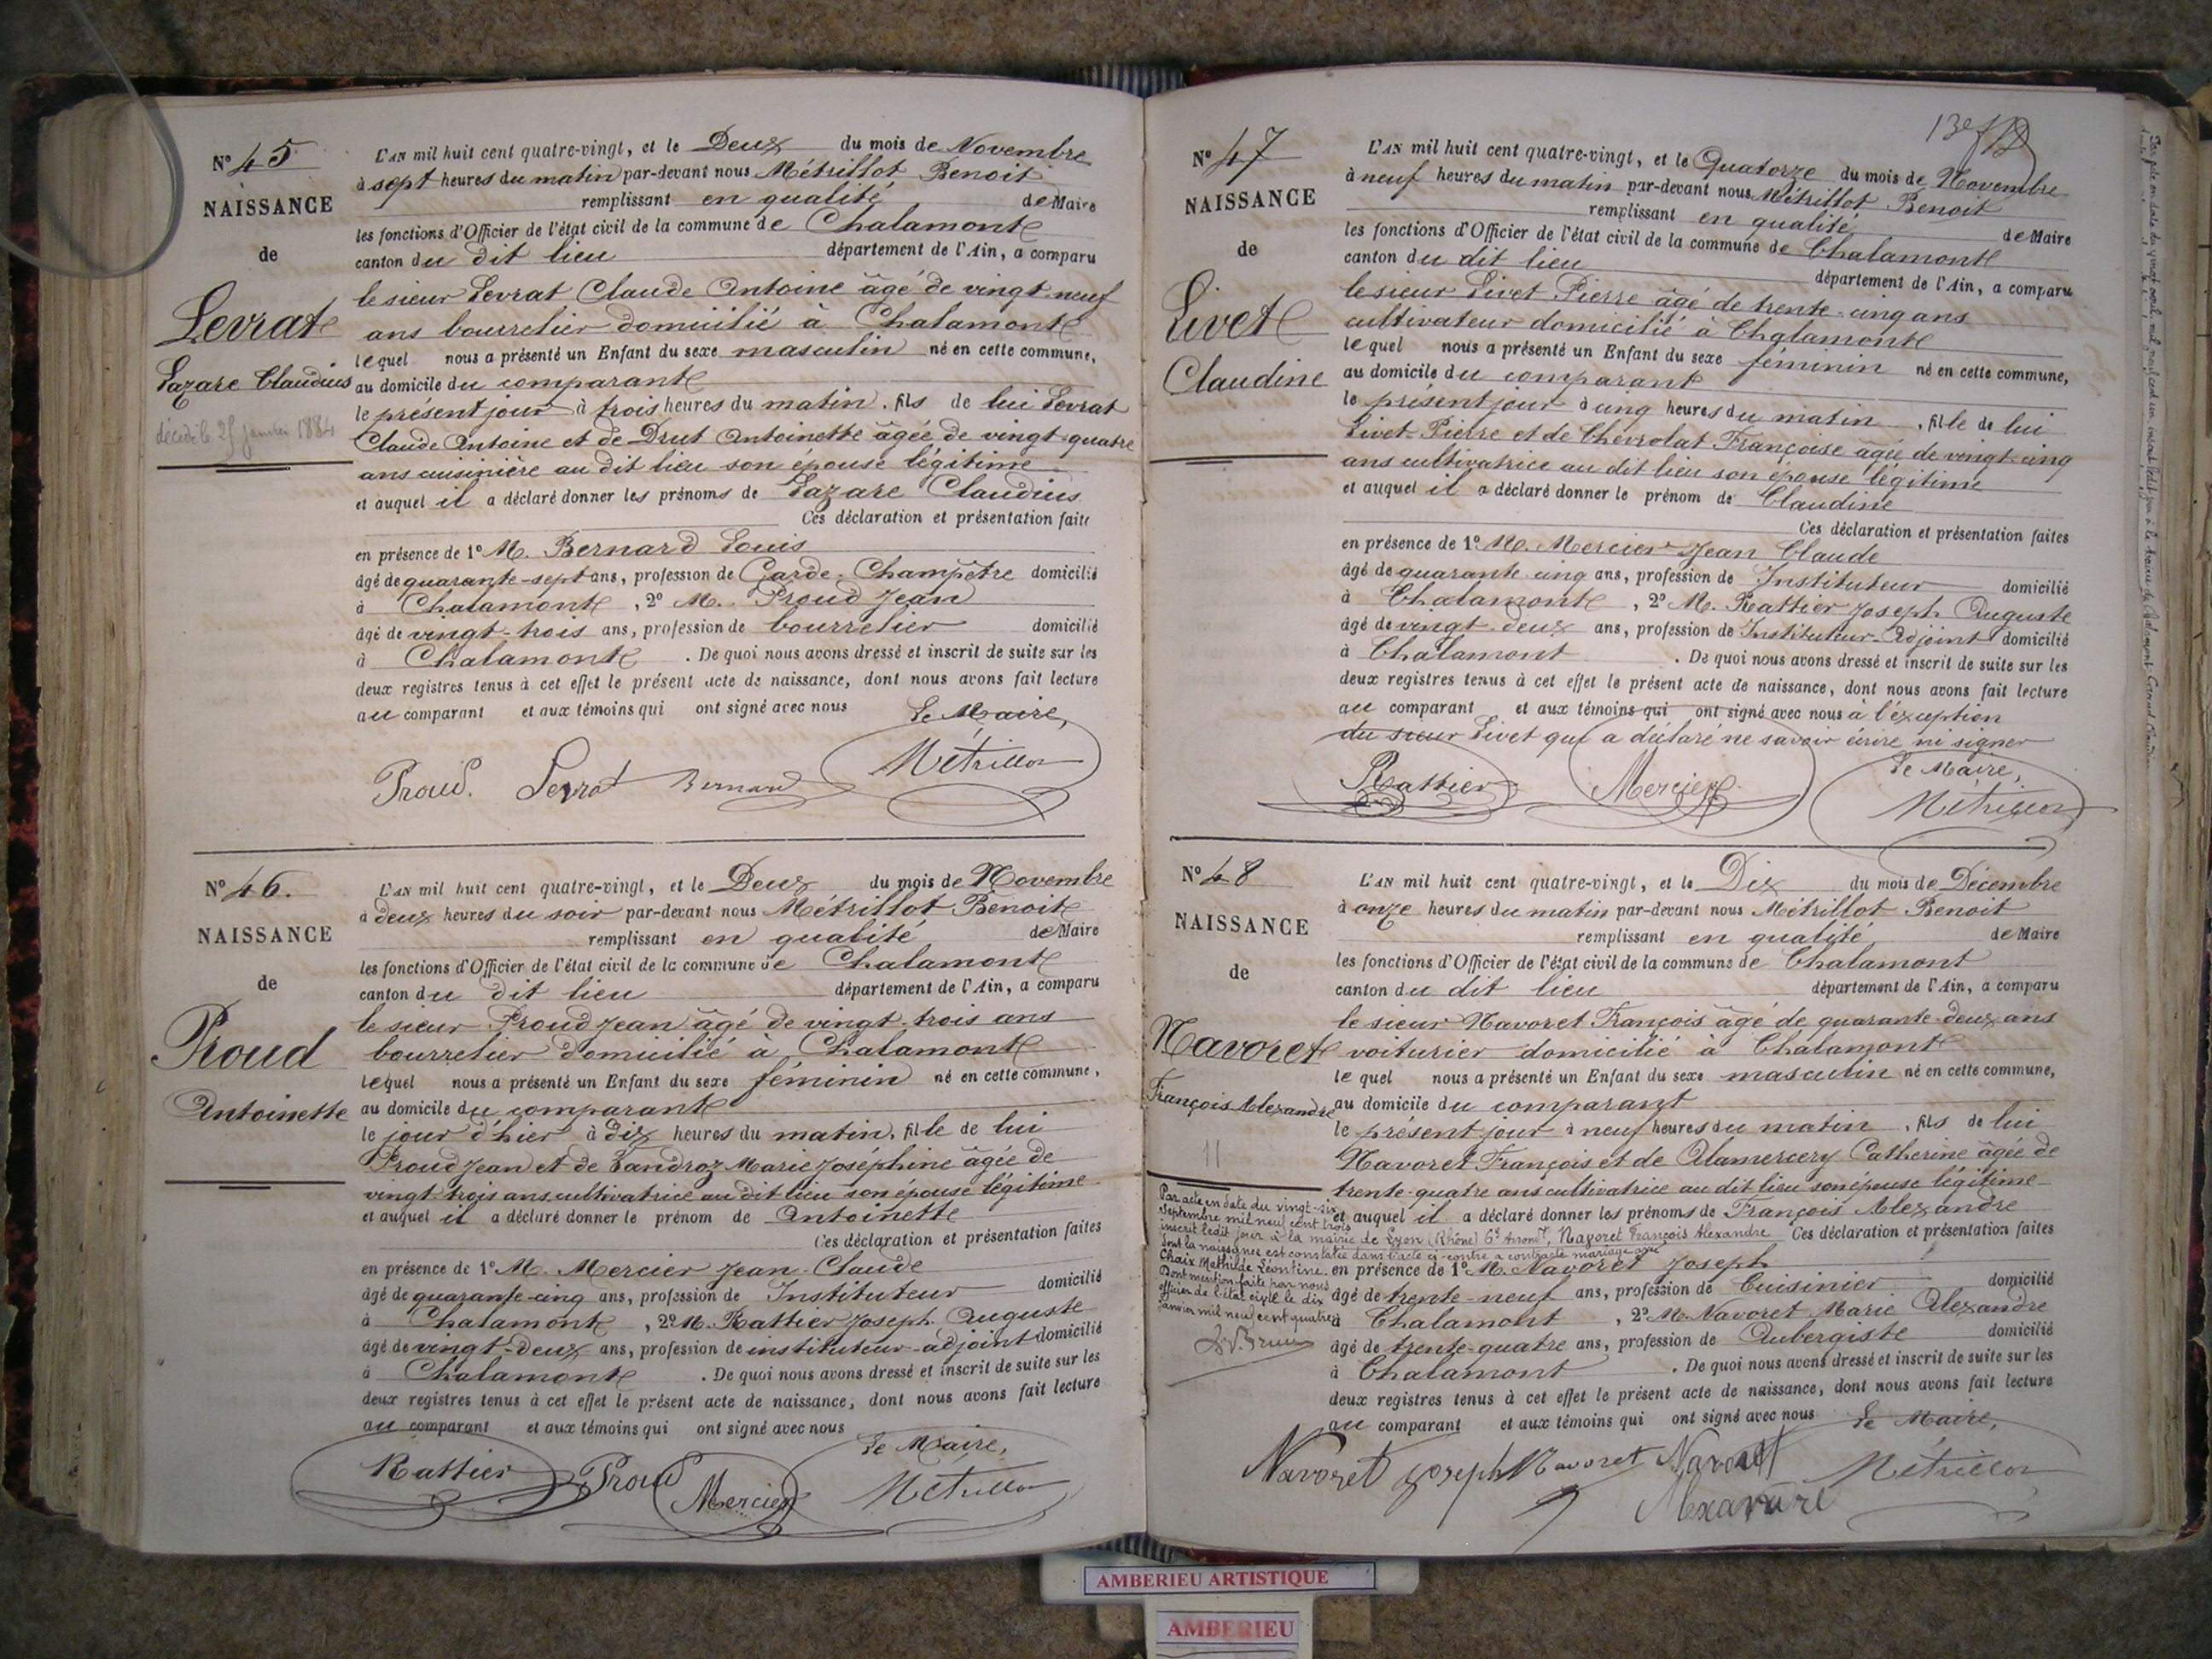 N° 45
NAISSANCE
de
Levrat
Lazare Claudius
décédé le 25 janvier 1884
L'AN mil huit cent quatre-vingt, et le Deux du mois de Novembre
à sept heures du matin par-devant nous Métrillot Benoit
remplissant en qualité de Maire
les fonctions d'Officier de l'état civil de la commune de Chalamont
canton du dit lieu département de l'Ain, a comparu
le sieur Levrat Claude Antoine âgé de vingt-neuf
ans bourrelier domicilié à Chalamont
lequel nous a présenté un Enfant du sexe masculin né en cette commune,
au domicile du comparant
le présent jour à trois heures du matin, fils de lui Levrat
Claude Antoine et de Drut Antoinette âgée de vingt-quatre
ans cuisinière au dit lieu son épouse légitime
et auquel il a déclaré donner les prénoms de Lazare Claudius
Ces déclaration et présentation faite
en présence de 1° M. Bernard Louis
âgé de quarante-sept ans, profession de Garde-Champêtre domicilié
à Chalamont, 2° M. Proud Jean
âgé de vingt-trois ans, profession de bourrelier domicilié
à Chalamont. De quoi nous avons dressé et inscrit de suite sur les
deux registres tenus à cet effet le présent acte de naissance, dont nous avons fait lecture
au comparant et aux témoins qui ont signé avec nous
Le Maire,
Proud. Levrat Bernard Métrillot
N° 46.
NAISSANCE
de
Proud
Antoinette
L'AN mil huit cent quatre-vingt, et le Deux du mois de Novembre
à deux heures du soir par-devant nous Métrillot Benoit
remplissant en qualité de Maire
les fonctions d'Officier de l'état civil de la commune de Chalamont
canton du dit lieu département de l'Ain, a comparu
le sieur Proud Jean âgé de vingt-trois ans
bourrelier domicilié à Chalamont
lequel nous a présenté un Enfant du sexe féminin né en cette commune,
au domicile du comparant
le jour d'hier à dix heures du matin, fille de lui
Proud Jean et de Tandroz Marie Joséphine âgée de
vingt-trois ans cultivatrice au dit lieu son épouse légitime
et auquel il a déclaré donner le prénom de Antoinette
Ces déclaration et présentation faites
en présence de 1° M. Mercier Jean-Claude
âgé de quarante-cinq ans, profession de Instituteur domicilié
à Chalamont, 2° M. Rattier Joseph Auguste
âgé de vingt-deux ans, profession de instituteur-adjoint domicilié
à Chalamont. De quoi nous avons dressé et inscrit de suite sur les
deux registres tenus à cet effet le présent acte de naissance, dont nous avons fait lecture
au comparant et aux témoins qui ont signé avec nous
Le Maire,
Rattier Proud Mercier Métrillot
N° 47
NAISSANCE
de
Livet
Claudine
L'AN mil huit cent quatre-vingt, et le Quatorze du mois de Novembre
à neuf heures du matin par-devant nous Métrillot Benoit
remplissant en qualité de Maire
les fonctions d'Officier de l'état civil de la commune de Chalamont
canton du dit lieu département de l'Ain, a comparu
le sieur Livet Pierre âgé de trente-cinq ans
cultivateur domicilié à Chalamont
lequel nous a présenté un Enfant du sexe féminin né en cette commune,
au domicile du comparant
le présent jour à cinq heures du matin, fille de lui
Livet Pierre et de Chevrolat Françoise âgée de vingt-cinq
ans cultivatrice au dit lieu son épouse légitime
et auquel il a déclaré donner le prénom de Claudine
Ces déclaration et présentation faites
en présence de 1° M. Mercier Jean Claude
âgé de quarante-cinq ans, profession de Instituteur domicilié
à Chalamont, 2° M. Rattier Joseph Auguste
âgé de vingt-deux ans, profession de Instituteur-Adjoint domicilié
à Chalamont. De quoi nous avons dressé et inscrit de suite sur les
deux registres tenus à cet effet le présent acte de naissance, dont nous avons fait lecture
au comparant et aux témoins qui ont signé avec nous à l'exception
du sieur Livet qui a déclaré ne savoir écrire ni signer
Le Maire,
Rattier Mercier Métrillot
N° 48
NAISSANCE
de
Navoret
François Alexandre
11
Par acte en date du vingt-six
Septembre mil neuf cent trois
inscrit ledit jour à la mairie de Lyon (Rhône) 6e Arrondt, Navoret François Alexandre
dont la naissance est constatée dans l'acte ci-contre a contracté mariage avec
Chaix Mathilde Léontine.
Dont mention faite par nous
officier de l'état civil le dix
janvier mil neuf cent quatre
L'AN mil huit cent quatre-vingt, et le Dix du mois de Décembre
à onze heures du matin par-devant nous Métrillot Benoit
remplissant en qualité de Maire
les fonctions d'Officier de l'état civil de la commune de Chalamont
canton du dit lieu département de l'Ain, a comparu
le sieur Navoret François âgé de quarante-deux ans
voiturier domicilié à Chalamont
lequel nous a présenté un Enfant du sexe masculin né en cette commune,
au domicile du comparant
le présent jour à neuf heures du matin, fils de lui
Navoret François et de Alamercery Catherine âgée de
trente-quatre ans cultivatrice au dit lieu son épouse légitime
et auquel il a déclaré donner les prénoms de François Alexandre
Ces déclaration et présentation faites
en présence de 1° M. Navoret Joseph
âgé de trente-neuf ans, profession de Cuisinier domicilié
à Chalamont, 2° M. Navoret Marie Alexandre
âgé de trente-quatre ans, profession de Aubergiste domicilié
à Chalamont. De quoi nous avons dressé et inscrit de suite sur les
deux registres tenus à cet effet le présent acte de naissance, dont nous avons fait lecture
au comparant et aux témoins qui ont signé avec nous
Le Maire,
Navoret Joseph Navoret Navoret Métrillot
AMBERIEU ARTISTIQUE
AMBERIEU